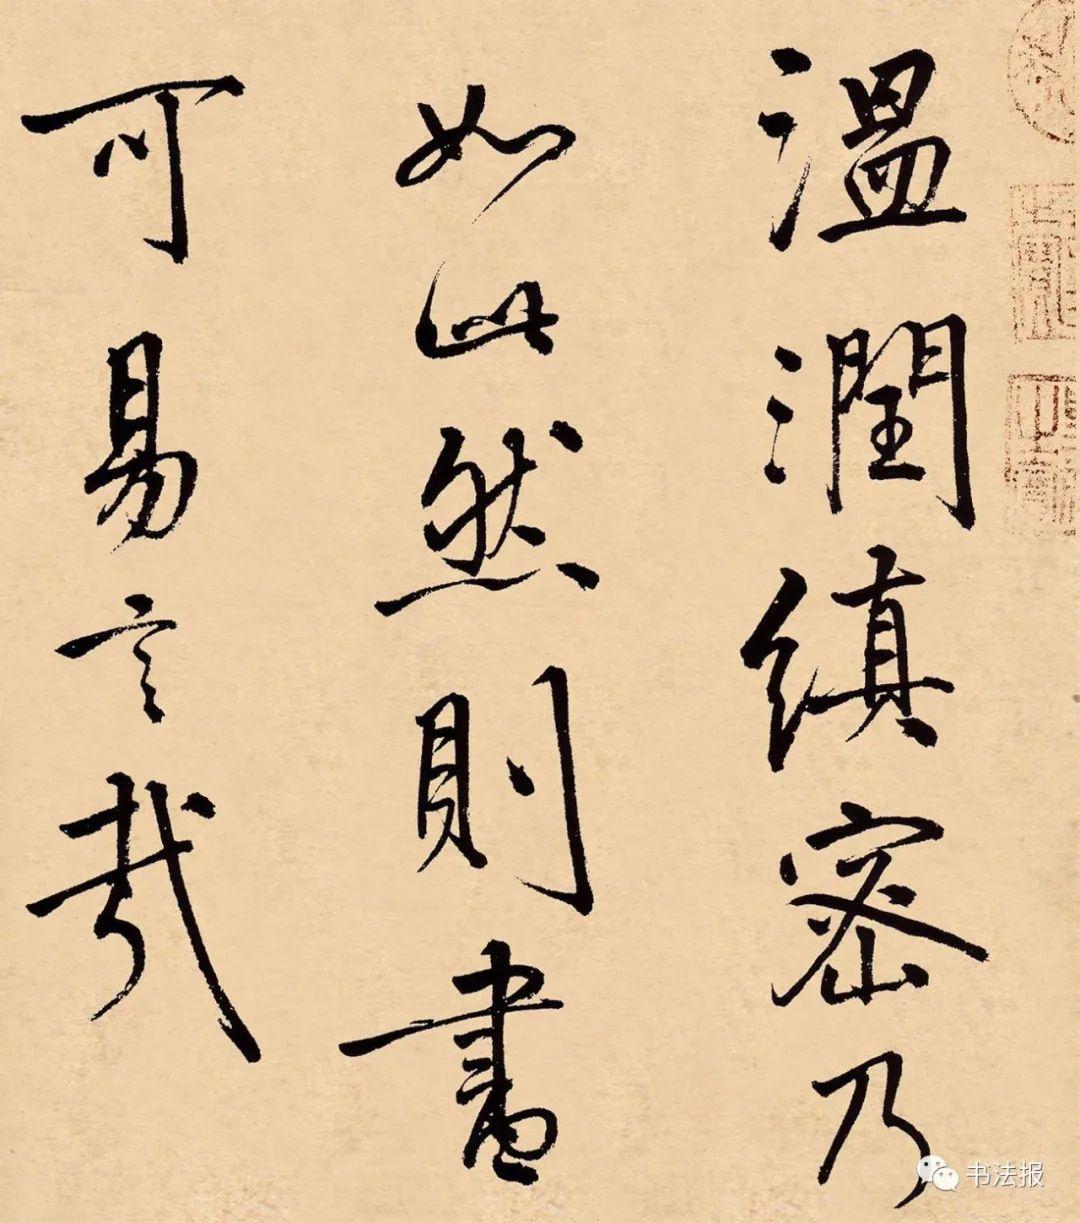 温潤縝密乃
如此然則畫
可易言哉
书法报